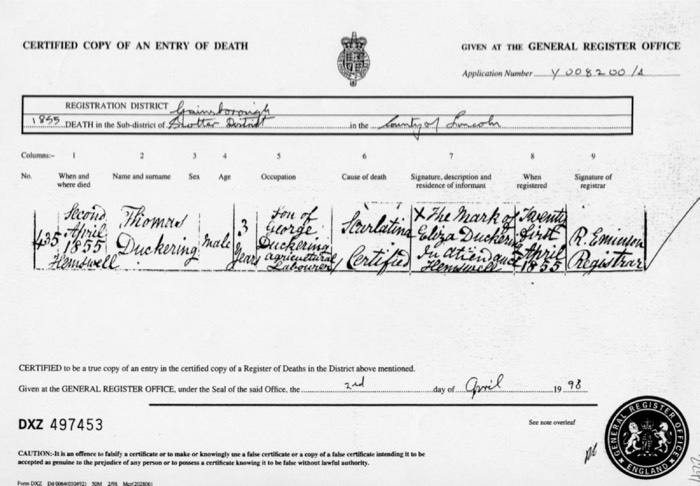 CERTIFIED COPY OF AN ENTRY OF DEATH
GIVEN AT THE GENERAL REGISTER OFFICE
Application Number Y 008200/A
REGISTRATION DISTRICT Gainsborough
1855 DEATH in the Sub-district of Scotter District in the County of Lincoln
Columns:- 1 2 3 4 5 6 7 8 9
No. When and where died Name and surname Sex Age Occupation Cause of death Signature, description and residence of informant When registered Signature of registrar
435 Second April 1855 Hemswell
Thomas Duckering
Male
3 Years
Son of George Duckering agricultural Labourer
Scarlatina Certified
X The Mark of Eliza Duckering In attendance Hemswell
Twenty first April 1855
R. Eminson Registrar
CERTIFIED to be a true copy of an entry in the certified copy of a Register of Deaths in the District above mentioned.
Given at the GENERAL REGISTER OFFICE, under the Seal of the said Office, the 2nd day of April 19 98
DXZ 497453
See note overleaf
CAUTION:-It is an offence to falsify a certificate or to make or knowingly use a false certificate or a copy of a false certificate intending it to be
accepted as genuine to the prejudice of any person or to possess a certificate knowing it to be false without lawful authority.
Form DXZ
GENERAL REGISTER OFFICE
ENGLAND